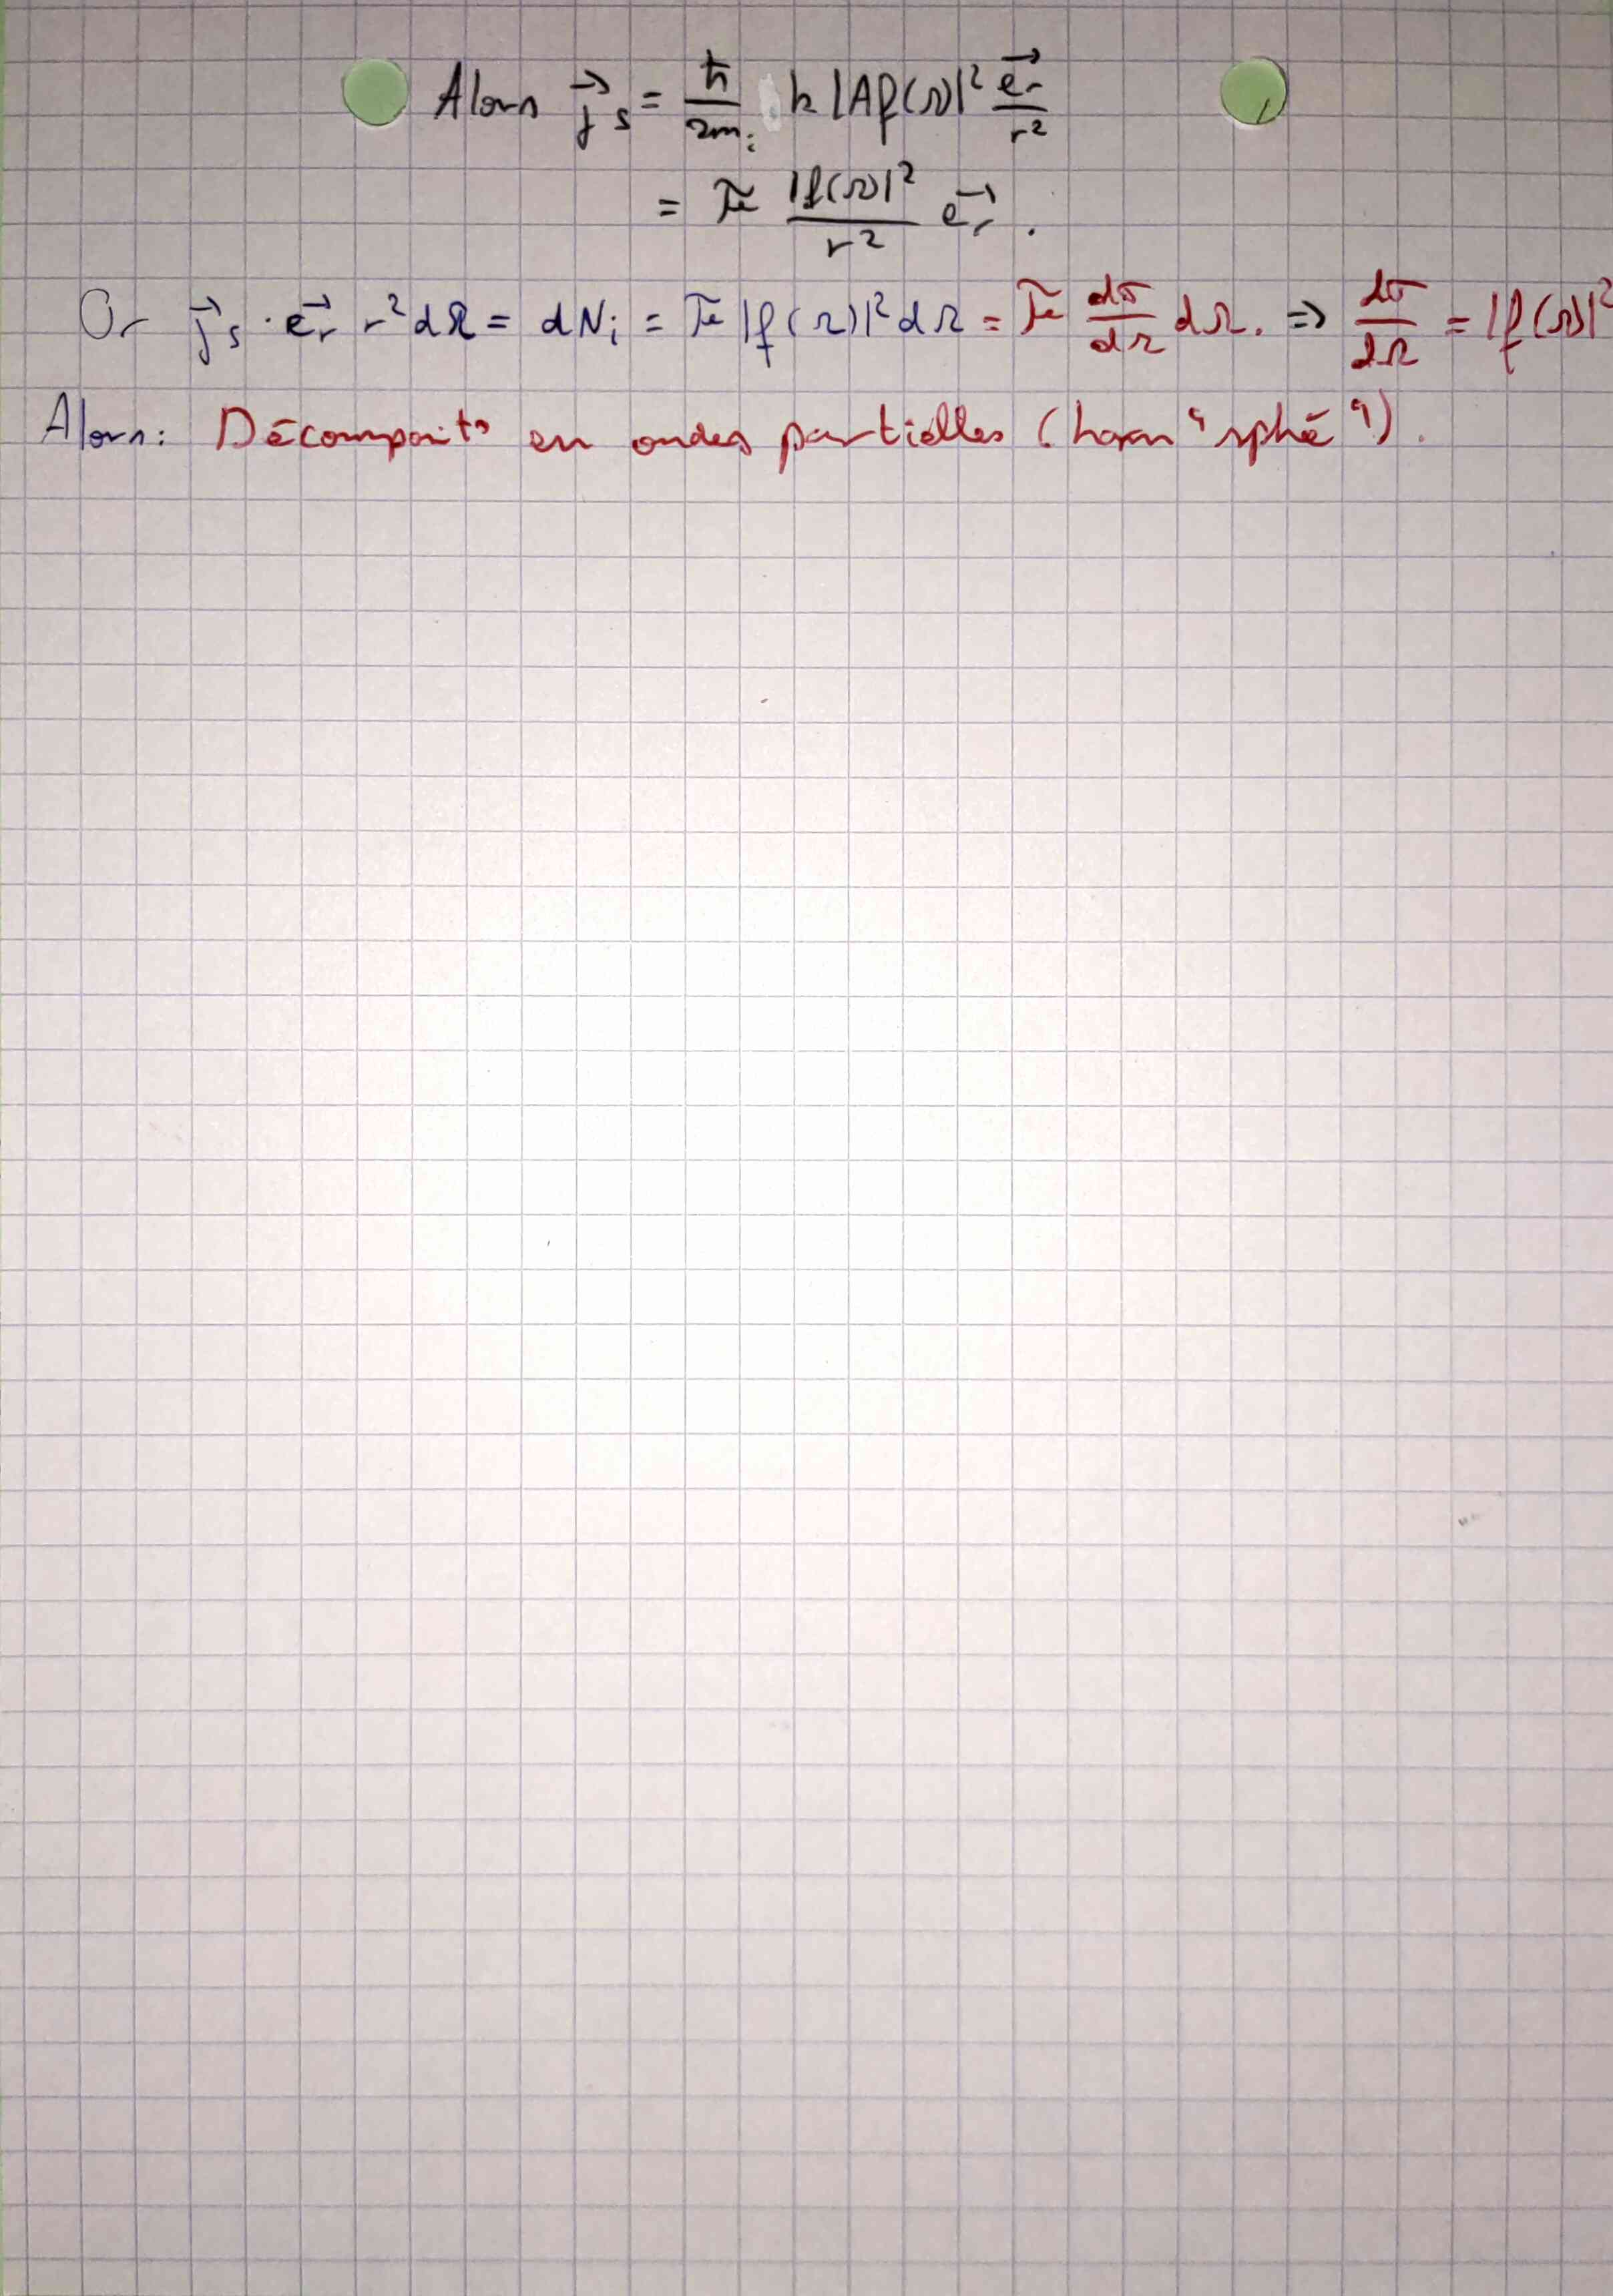 Alors $\vec{j}_s = \frac{\hbar}{2m_i} k |Af(\Omega)|^2 \frac{\vec{e_r}}{r^2}$
$= \mathcal{F}_i \frac{|f(\Omega)|^2}{r^2} \vec{e_r}.$
Or $\vec{j}_s \cdot \vec{e_r} \, r^2 d\Omega = dN_i = \mathcal{F}_i |f(\Omega)|^2 d\Omega = \mathcal{F}_i \frac{d\sigma}{d\Omega} d\Omega. \Rightarrow \frac{d\sigma}{d\Omega} = |f(\Omega)|^2$
Alors: Décomposit° en ondes partielles (harm "sphé").